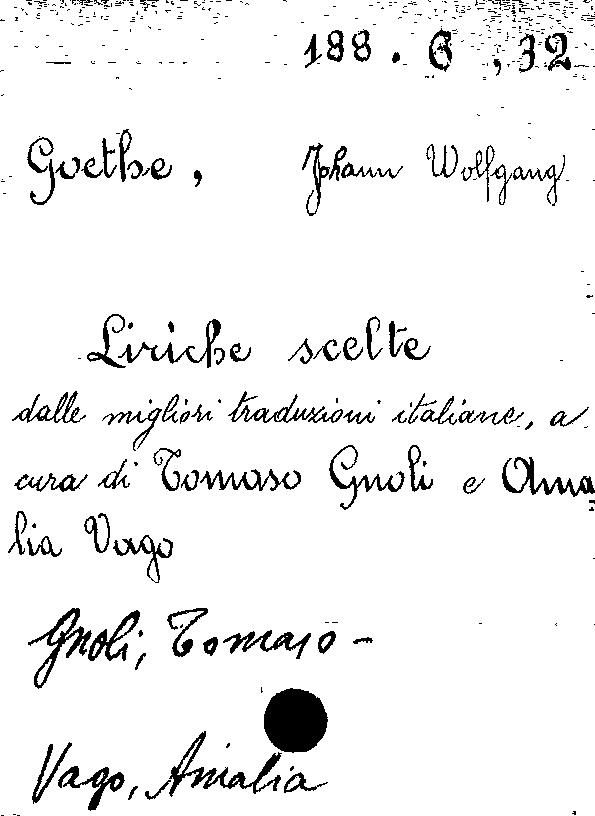 188. G, 32
Goethe, Johann Wolfgang
Liriche scelte
dalle migliori traduzioni italiane, a
cura di Tomaso Gnoli e Ama
lia Vago
Gnoli, Tomaso -
Vago, Amalia